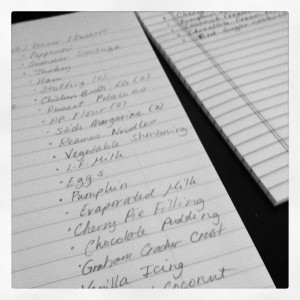 Dinner
· Pepperoni
· Summer Sausage
· Turkey
· Ham
· Stuffing (2)
· Chicken Broth (2)
· Russet Potatoes
· AP Flour (2)
· Stick Margarine (2)
· Reames Noodles
· Vegetable Shortening
· L.F. Milk
· Eggs
· Pumpkin
· Evaporated Milk
· Cherry Pie Filling
· Chocolate Pudding
· Graham Cracker Crust
· Vanilla Icing
Coconut
· Cherry
· Pumpkin
· Chocolate Cream
· Sugar